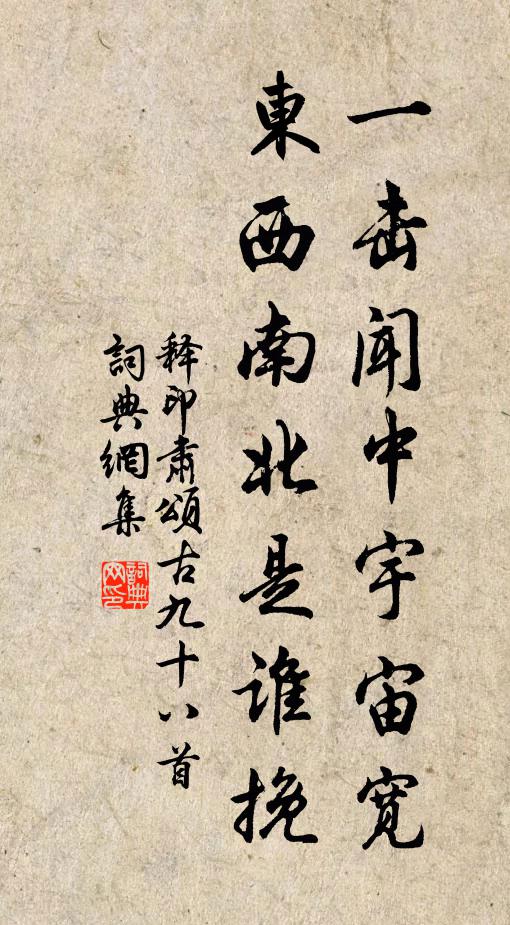 一击闻中宇宙宽
東西南北是誰挽
释印肃頌古九十八首
詞典網集
詞典网印